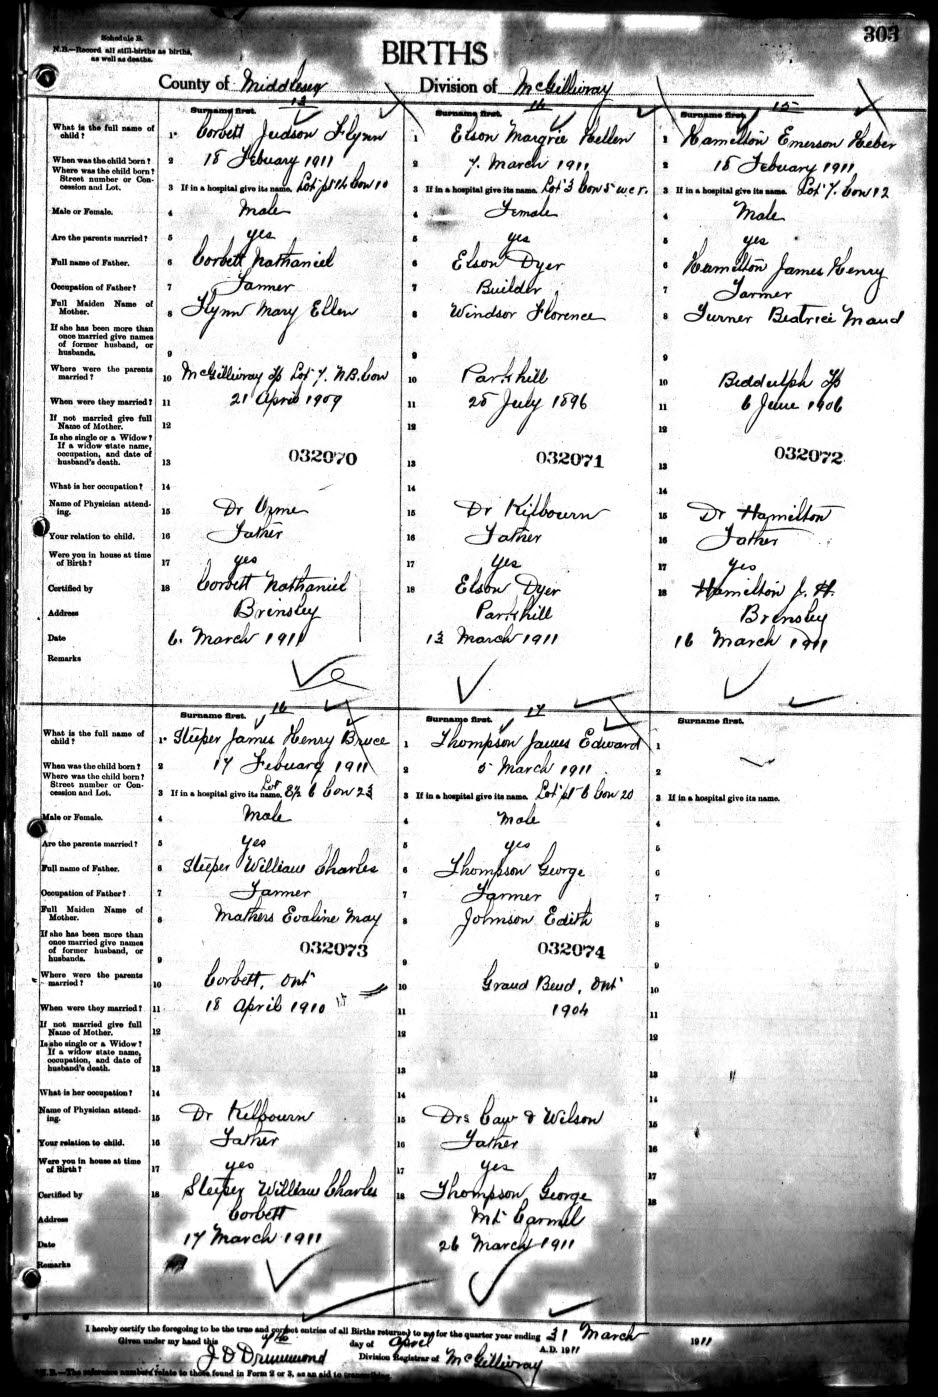 303
Schedule B.
N.B.—Record all still-births as births,
as well as deaths.
BIRTHS
County of Middlesex Division of McGillivray
13 14 15
Surname first. Surname first. Surname first.
What is the full name of child? 1 Corbett Judson Flynn 1 Elson Margrie Hellen 1 Hamelton Emerson Heber
When was the child born? 2 18 Febuary 1911 2 7. March 1911 2 18 Febuary 1911
Where was the child born? Street number or Concession and Lot. 3 If in a hospital give its name. Lot pt 14 Con 10 3 If in a hospital give its name. Lot 3 Con 5 w c r. 3 If in a hospital give its name. Lot 7. Con 12
Male or Female. 4 Male 4 Female 4 Male
Are the parents married? 5 yes 5 yes 5 yes
Full name of Father. 6 Corbett Nathaniel 6 Elson Dyer 6 Hamelton James Henry
Occupation of Father? 7 Farmer 7 Builder 7 Farmer
Full Maiden Name of Mother. 8 Flynn Mary Ellen 8 Windsor Florence 8 Turner Beatrice Maud
If she has been more than once married give names of former husband, or husbands. 9 9 9
Where were the parents married? 10 McGillivray Tp Lot 7. N.B. Con 10 Parkhill 10 Biddulph Tp
When were they married? 11 21 April 1909 11 28 July 1896 11 6 June 1906
If not married give full Name of Mother. 12 12 12
Is she single or a Widow? If a widow state name, occupation, and date of husband's death. 13 032070 13 032071 13 032072
What is her occupation? 14 14 14
Name of Physician attending. 15 Dr Orme 15 Dr Kilbourn 15 Dr Hamelton
Your relation to child. 16 Father 16 Father 16 Father
Were you in house at time of Birth? 17 yes 17 yes 17 yes
Certified by 18 Corbett Nathaniel 18 Elson Dyer 18 Hamelton J. H.
Address Brinsley Parkhill Brensley
Date 6. March 1911 13 March 1911 16 March 1911
Remarks
16 17
Surname first. Surname first. Surname first.
What is the full name of child? 1 Sleeper James Henry Bruce 1 Thompson James Edward 1
When was the child born? 2 17 Febuary 1911 2 5 March 1911 2
Where was the child born? Street number or Concession and Lot. 3 If in a hospital give its name. Lot E½ 6 Con 23 3 If in a hospital give its name. Lot pt 6 Con 20 3 If in a hospital give its name.
Male or Female. 4 Male 4 Male 4
Are the parents married? 5 yes 5 yes 5
Full name of Father. 6 Sleeper William Charles 6 Thompson George 6
Occupation of Father? 7 Farmer 7 Farmer 7
Full Maiden Name of Mother. 8 Mathers Evaline May 8 Johnson Edith 8
If she has been more than once married give names of former husband, or husbands. 9 032073 9 032074 9
Where were the parents married? 10 Corbett, Ont 10 Grand Bend, Ont 10
When were they married? 11 18 April 1910 11 1904 11
If not married give full Name of Mother. 12 12 12
Is she single or a Widow? If a widow state name, occupation, and date of husband's death. 13 13 13
What is her occupation? 14 14 14
Name of Physician attending. 15 Dr Kilbourn 15 Drs Caw & Wilson 15
Your relation to child. 16 Father 16 Father 16
Were you in house at time of Birth? 17 yes 17 yes 17
Certified by 18 Sleeper William Charles 18 Thompson George 18
Address Corbett Mt Carmel
Date 17 March 1911 26 March 1911
Remarks
I hereby certify the foregoing to be the true and correct entries of all Births returned to me for the quarter year ending 31 March 1911
Given under my hand this day of April A.D. 1911
J D Drummond Division Registrar of McGillivray
N.B.—The reference numbers relate to those found in Form 2 or 3, as an aid to transcribing.